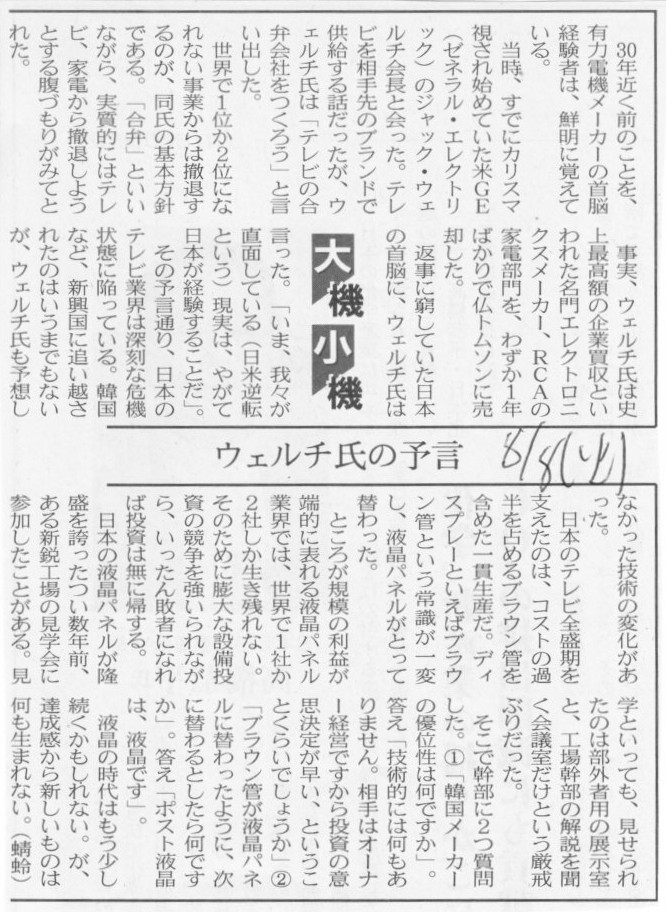 大機小機
ウェルチ氏の予言
8/8
30年近く前のことを、
有力電機メーカーの首脳
経験者は、鮮明に覚えて
いる。
当時、すでにカリスマ
視され始めていた米GE
(ゼネラル・エレクトリ
ック)のジャック・ウェ
ルチ会長と会った。テレ
ビを相手先のブランドで
供給する話だったが、ウ
ェルチ氏は「テレビの合
弁会社をつくろう」と言
い出した。
世界で1位か2位にな
れない事業からは撤退す
るのが、同氏の基本方針
である。「合弁」といい
ながら、実質的にはテレ
ビ、家電から撤退しよう
とする腹づもりがみてと
れた。
事実、ウェルチ氏は史
上最高額の企業買収とい
われた名門エレクトロニ
クスメーカー、RCAの
家電部門を、わずか1年
ばかりで仏トムソンに売
却した。
返事に窮していた日本
の首脳に、ウェルチ氏は
言った。「いま、我々が
直面している(日米逆転
という)現実は、やがて
日本が経験することだ」。
その予言通り、日本の
テレビ業界は深刻な危機
状態に陥っている。韓国
など、新興国に追い越さ
れたのはいうまでもない
が、ウェルチ氏も予想し
なかった技術の変化があ
った。
日本のテレビ全盛期を
支えたのは、コストの過
半を占めるブラウン管を
含めた一貫生産だ。ディ
スプレーといえばブラウ
ン管という常識が一変
し、液晶パネルがとって
替わった。
ところが規模の利益が
端的に表れる液晶パネル
業界では、世界で1社か
2社しか生き残れない。
そのために膨大な設備投
資の競争を強いられなが
ら、いったん敗者になれ
ば投資は無に帰する。
日本の液晶パネルが隆
盛を誇ったつい数年前、
ある新鋭工場の見学会に
参加したことがある。見
学といっても、見せられ
たのは部外者用の展示室
と、工場幹部の解説を聞
く会議室だけという厳戒
ぶりだった。
そこで幹部に2つ質問
した。①「韓国メーカー
の優位性は何ですか」。
答え「技術的には何もあ
りません。相手はオーナ
ー経営ですから投資の意
思決定が早い、というこ
とくらいでしょうか」②
「ブラウン管が液晶パネ
ルに替わったように、次
に替わるとしたら何です
か」。答え「ポスト液晶
は、液晶です」。
液晶の時代はもう少し
続くかもしれない。が、
達成感から新しいものは
何も生まれない。(蜻蛉)